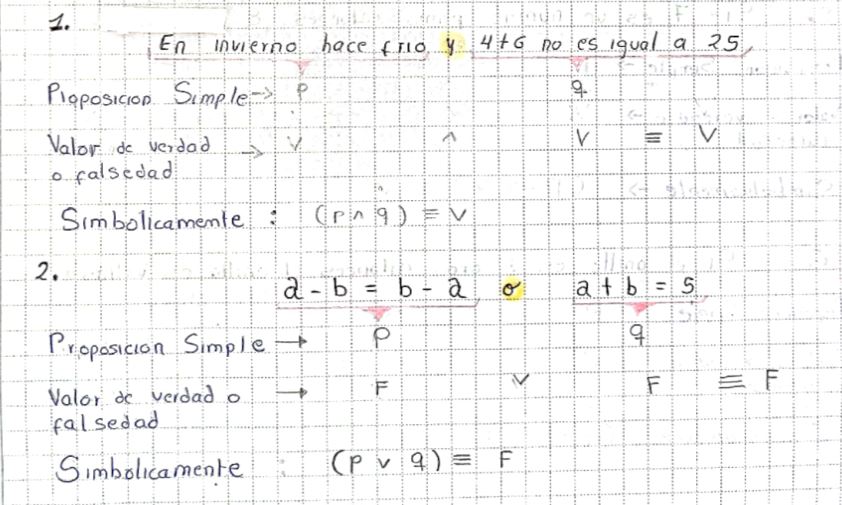 1.
En invierno hace frio y 4+6 no es igual a 25
Proposicion Simple → p q
Valor de verdad → V ∧ V ≡ V
o falsedad
Simbolicamente : (p ∧ q) ≡ V
2.
a - b = b - a o a + b = 5
Proposicion Simple → p q
Valor de verdad o → F v F ≡ F
falsedad
Simbolicamente : (p v q) ≡ F